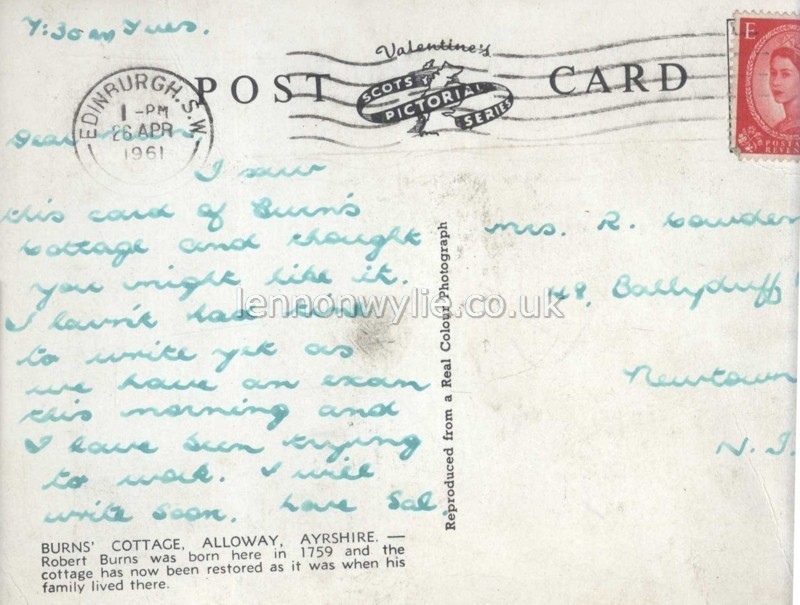 7:30am Tues.
Valentine's
POST CARD
SCOTS PICTORIAL SERIES
EDINBURGH. S.W.
1 - PM
26 APR
1961
E
POSTAGE
REVEN
Dear
I saw
this card of Burn's
cottage and thought
you might like it.
I havn't had time
to write yet as
we have an exam
this morning and
I have been trying
to work. I will
write soon. Love Sal.
Mrs. R. Cowden
148, Ballyduff
Newtown
N. I.
Reproduced from a Real Colour Photograph
lennonwylie.co.uk
BURNS' COTTAGE, ALLOWAY, AYRSHIRE. —
Robert Burns was born here in 1759 and the
cottage has now been restored as it was when his
family lived there.